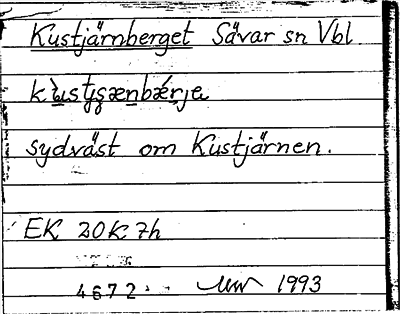 Kustjärnberget Sävar sn Vbl
sydväst om Kustjärnen.
EK 20K 7h
4672
1993